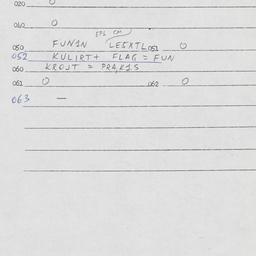 020 O
040 O
050 FUN1N LESXTL 051 O
052 KULIRT+ FLAG = FUN
060 KROJT = PRAKIS
061 O 062 O
063 —